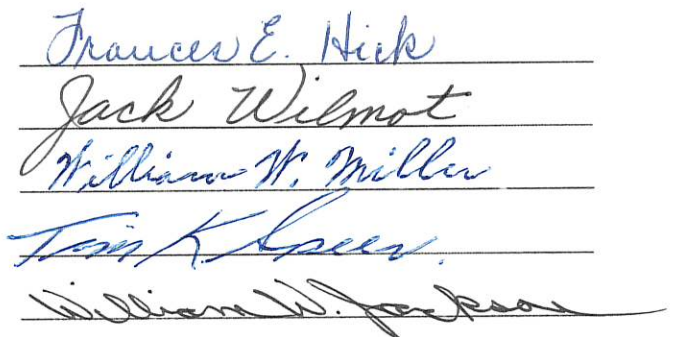 Frances E. Hick
Jack Wilmot
William W. Miller
Tim K. Speer.
William W. Jackson